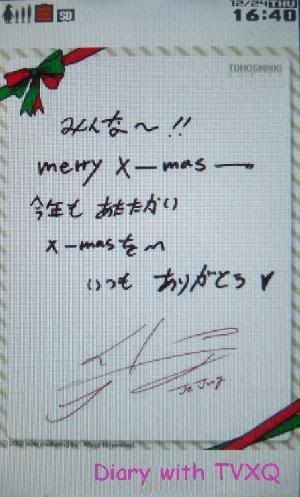 12/24THU
16:40
TOHOSHINKI
みんな〜!!
merry X-mas ー
今年も あたたかい
x-masをへ
いつも ありがとう ♥
Jejung
Diary with TVXQ